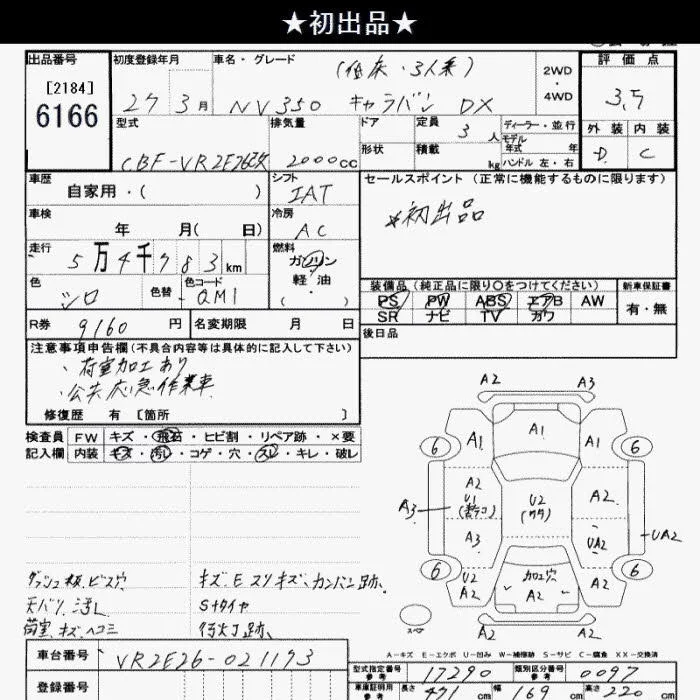 ★初出品★
出品番号
[2184]
6166
初度登録年月
27 3月
車名・グレード
(低床・3人乗)
NV350 キャラバン DX
2WD
4WD
評価点
3.5
外装 内装
D C
型式
CBF-VR2E26改
排気量
2000cc
ドア
形状
定員
3人
積載
kg
ディーラー・並行
モデル年式 年
ハンドル 左・右
車歴
自家用・( )
シフト
IAT
セールスポイント (正常に機能するものに限ります)
*初出品
車検
年 月( 日)
冷房
AC
走行
5万4千783km
燃料
ガソリン
軽油
( ・ )
色
シロ
色替
色コード
QM1
装備品(純正品に限り○をつけてください)
PS PW ABS エアB AW
SR ナビ TV ガワ
新車保証書
有・無
R券
9160円
名変期限 月 日
後日品
注意事項申告欄(不具合内容等は具体的に記入して下さい)
・荷室加工あり
・公共応急作業車
修復歴 有 [箇所 ]
検査員 FW キズ・飛石・ヒビ割・リペア跡・×要
記入欄 内装 キズ・汚レ・コゲ・穴・スレ・キレ・破レ
A2 A3
A1 A1 A1
6 6
A2 U1 U2 A2
A3 A3 UA2 UA2
6 6
U2 A2 加工穴 A2 A2
A2 A2
スペア
ダッシュ板ビス穴
天バリ汚レ
荷室キズヘコミ
キズ、E スリキズ、カンバン跡、
Sタイヤ
行灯跡、
A-キズ E-エクボ U-凹み W-補修跡 S-サビ C-腐食 XX-交換済
車台番号
VR2E26-021193
登録番号
型式指定番号 参考
17290
類別区分番号 参考
0097
車庫証明用 参考
長さ 471cm 幅 169cm 高さ 220cm